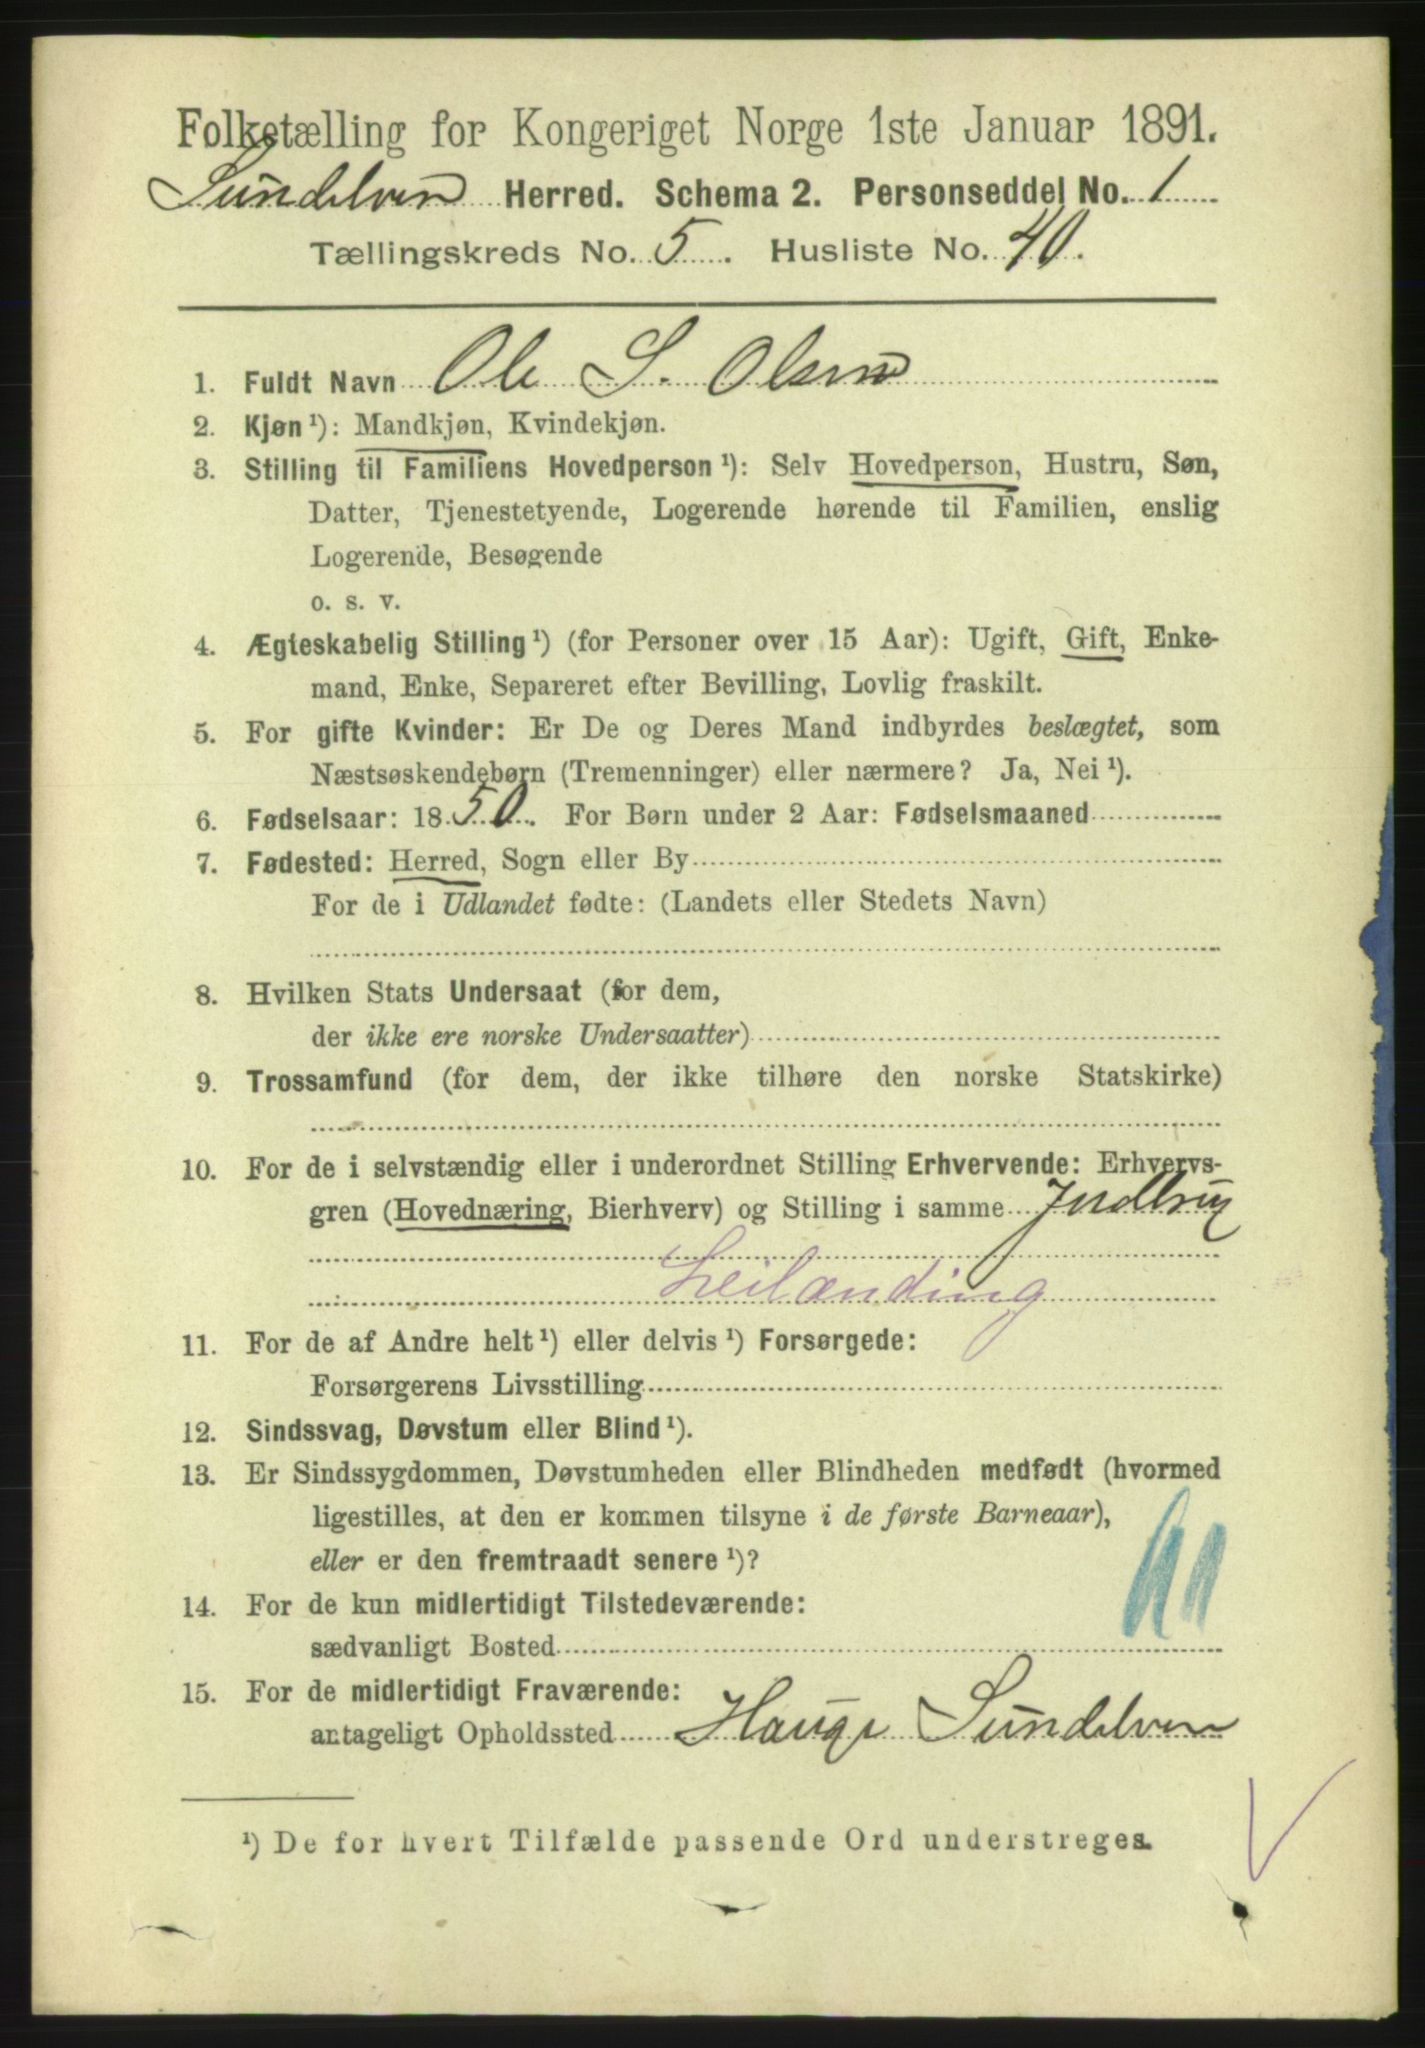 Folketælling for Kongeriget Norge 1ste Januar 1891.
Sundelven Herred. Schema 2. Personseddel No. 1
Tællingskreds No. 5. Husliste No. 40.
1. Fuldt Navn Ole S. Olsen
2. Kjøn ¹): Mandkjøn, Kvindekjøn.
3. Stilling til Familiens Hovedperson ¹): Selv Hovedperson, Hustru, Søn,
Datter, Tjenestetyende, Logerende hørende til Familien, enslig
Logerende, Besøgende
o. s. v.
4. Ægteskabelig Stilling ¹) (for Personer over 15 Aar): Ugift, Gift, Enke-
mand, Enke, Separeret efter Bevilling, Lovlig fraskilt.
5. For gifte Kvinder: Er De og Deres Mand indbyrdes beslægtet, som
Næstsøskendebørn (Tremenninger) eller nærmere? Ja, Nei ¹).
6. Fødselsaar: 1850. For Børn under 2 Aar: Fødselsmaaned
7. Fødested: Herred, Sogn eller By
For de i Udlandet fødte: (Landets eller Stedets Navn)
8. Hvilken Stats Undersaat (for dem,
der ikke ere norske Undersaatter)
9. Trossamfund (for dem, der ikke tilhøre den norske Statskirke)
10. For de i selvstændig eller i underordnet Stilling Erhvervende: Erhvervs-
gren (Hovednæring, Bierhverv) og Stilling i samme
Leilænding
11. For de af Andre helt ¹) eller delvis ¹) Forsørgede:
Forsørgerens Livsstilling
12. Sindssvag, Døvstum eller Blind ¹).
13. Er Sindssygdommen, Døvstumheden eller Blindheden medfødt (hvormed
ligestilles, at den er kommen tilsyne i de første Barneaar),
eller er den fremtraadt senere ¹)?
14. For de kun midlertidigt Tilstedeværende:
sædvanligt Bosted
15. For de midlertidigt Fraværende:
antageligt Opholdssted Hauge Sundelven
¹) De for hvert Tilfælde passende Ord understreges.